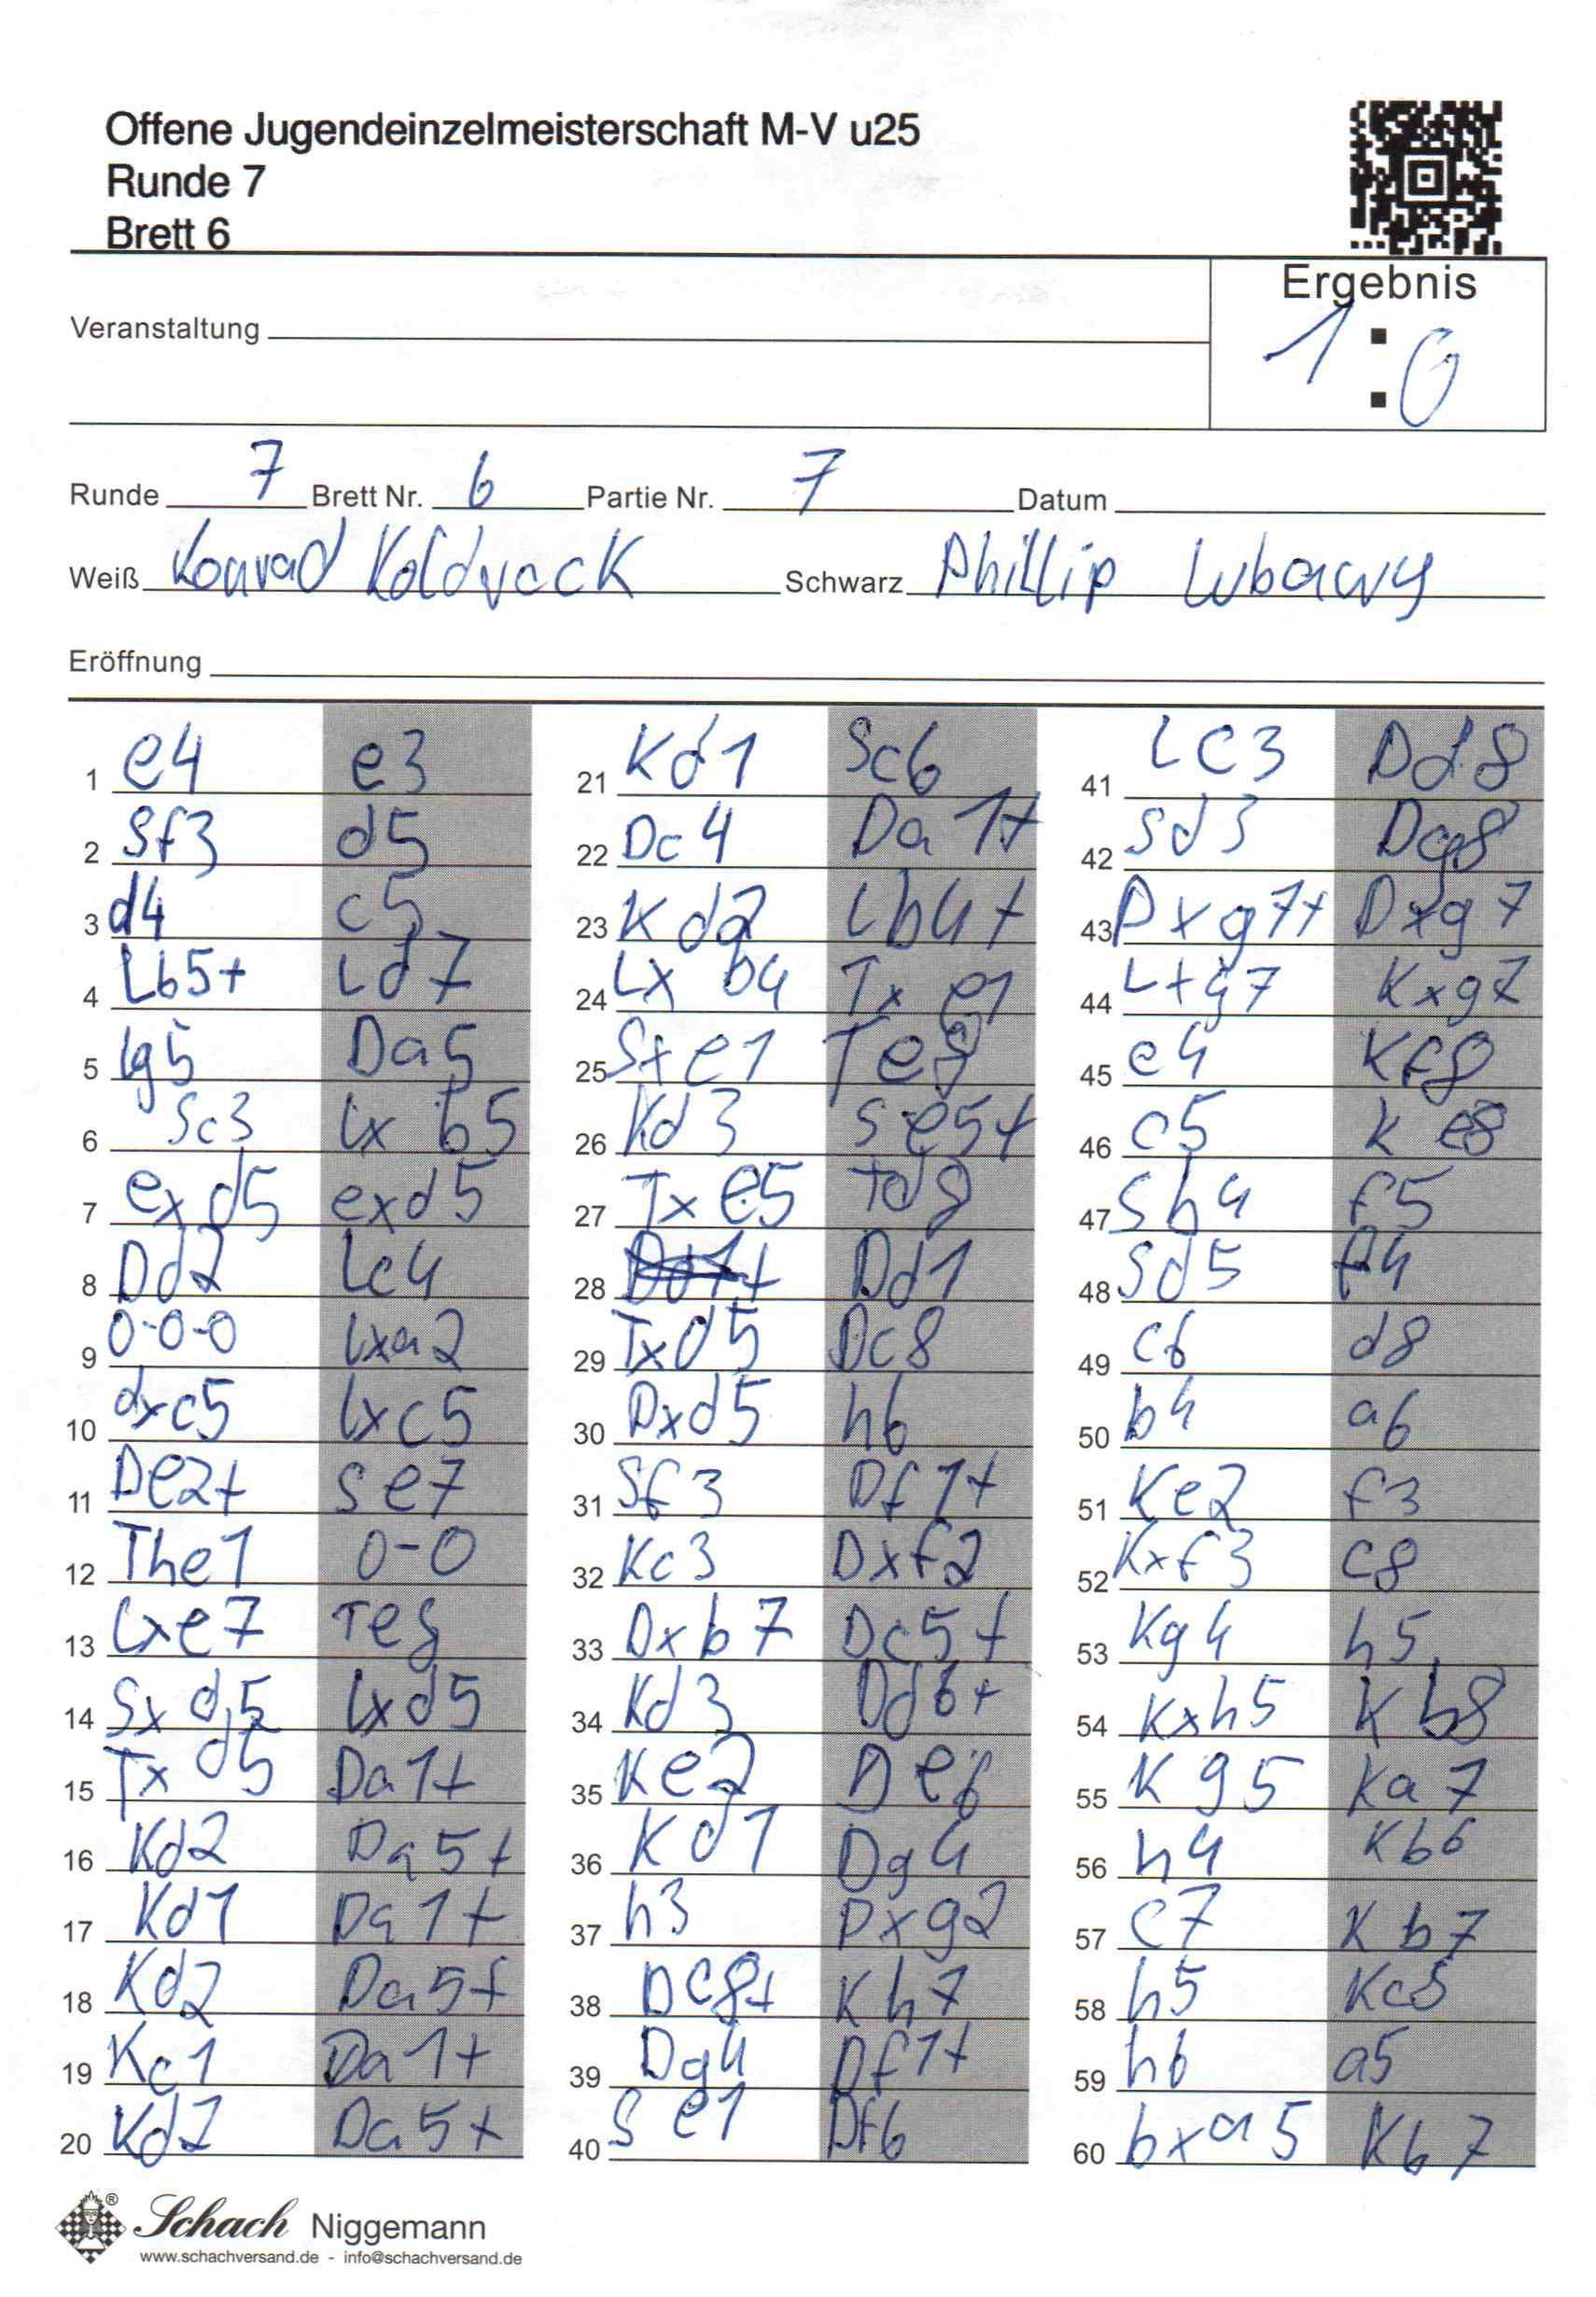 Offene Jugendeinzelmeisterschaft M-V u25
Runde 7
Brett 6
Ergebnis
1 : 0
Veranstaltung
Runde 7 Brett Nr. 6 Partie Nr. 7 Datum
Weiß Konrad Koldvack Schwarz Phillip Lubawy
Eröffnung
1 e4 e3
2 Sf3 d5
3 d4 c5
4 Lb5+ Ld7
5 Lg5 Da5
6 Sc3 Lxb5
7 exd5 exd5
8 Dd2 Lc4
9 0-0-0 Lxa2
10 dxc5 Lxc5
11 De2+ Se7
12 The1 0-0
13 Lxe7 Te8
14 Sxd5 Lxd5
15 Txd5 Da1+
16 Kd2 Da5+
17 Kd1 Da1+
18 Kd2 Da5+
19 Kc1 Da1+
20 Kd2 Da5+
21 Kd1 Sc6
22 Dc4 Da1+
23 Kd2 Lb4+
24 Lxb4 Txe1
25 Sxe1 Te8
26 Kd3 Se5+
27 Txe5 Td8
28 Dd1
29 Txd5 Dc8
30 Dxd5 h6
31 Sf3 Df1+
32 Kc3 Dxf2
33 Dxb7 Dc5+
34 Kd3 Dd6+
35 Ke2 De6
36 Kd1 Dg4
37 h3 Dxg2
38 Dc8+ Kh7
39 Dg4 Df1+
40 Se1 Df6
41 Lc3 Dd8
42 Sd3 Dg8
43 Dxg7+ Dxg7
44 Lxg7 Kxg7
45 c4 Kf8
46 c5 Ke8
47 Sb4 f5
48 Sd5 f4
49 c6 d8
50 b4 a6
51 Ke2 f3
52 Kxf3 c8
53 Kg4 h5
54 Kxh5 Kb8
55 Kg5 Ka7
56 h4 Kb6
57 c7 Kb7
58 h5 Kc8
59 h6 a5
60 bxa5 Kb7
Schach Niggemann
www.schachversand.de - info@schachversand.de